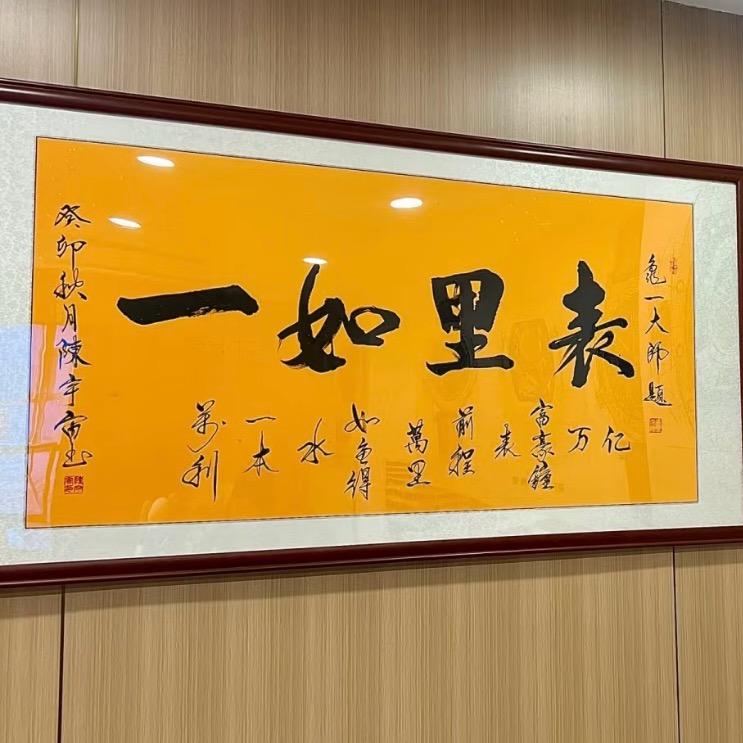 龜一大師題
表里如一
亿万富豪鐘表前程萬里如魚得水一本萬利
癸卯秋月陳宇书